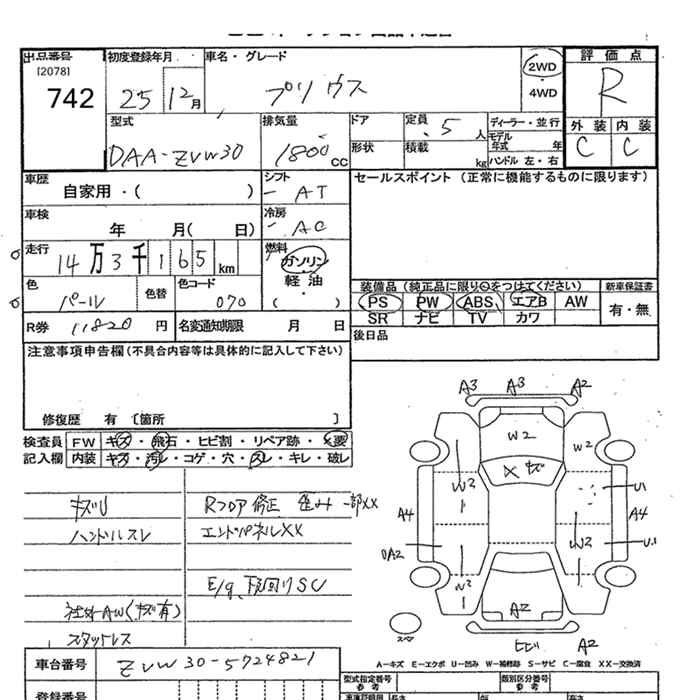 出品番号 初度登録年月 車名・グレード 評価点
(2078)
742 25 12月 プリウス 2WD・4WD R
型式 排気量 ドア 定員 ディーラー・並行 外装 内装
DAA-ZVW30 1800cc 形状 .5人 モデル年式 年 C C
積載 kg ハンドル 左・右
車歴 シフト セールスポイント (正常に機能するものに限ります)
自家用・( ) AT
車検 冷房
年 月( 日) AC
走行 燃料
14万3千165km ガソリン
色 色替 色コード 軽油 装備品 (純正品に限り○をつけてください) 新車保証書
パール 070 ( ) PS PW ABS エアB AW 有・無
SR ナビ TV カワ
R券 11820円 名変通知期限 月 日 後日品
注意事項申告欄 (不具合内容等は具体的に記入して下さい)
修復歴 有 [箇所 ]
検査員 FW キズ・飛石・ヒビ割・リペア跡・X要
記入欄 内装 キズ・汚レ・コゲ・穴・スレ・キレ・破レ
キズU Rフロア修正 歪み 一部XX
ハンドルスレ エンドパネルXX
E/g、下回りSC
社外AW(キズ有)
スタッドレス
A3 A3 A2
W2 W2
W2 Xキズ U1
A4 A4
0A2 W2 U1
W2 A2
スペア
ヒビ A2
A-キズ E-エクボ U-凹み W-補修跡 S-サビ C-腐食 XX-交換済
車台番号 ZVW30-5724821
型式指定番号 参考 類別区分番号 参考
登録番号 車庫証明用 長さ